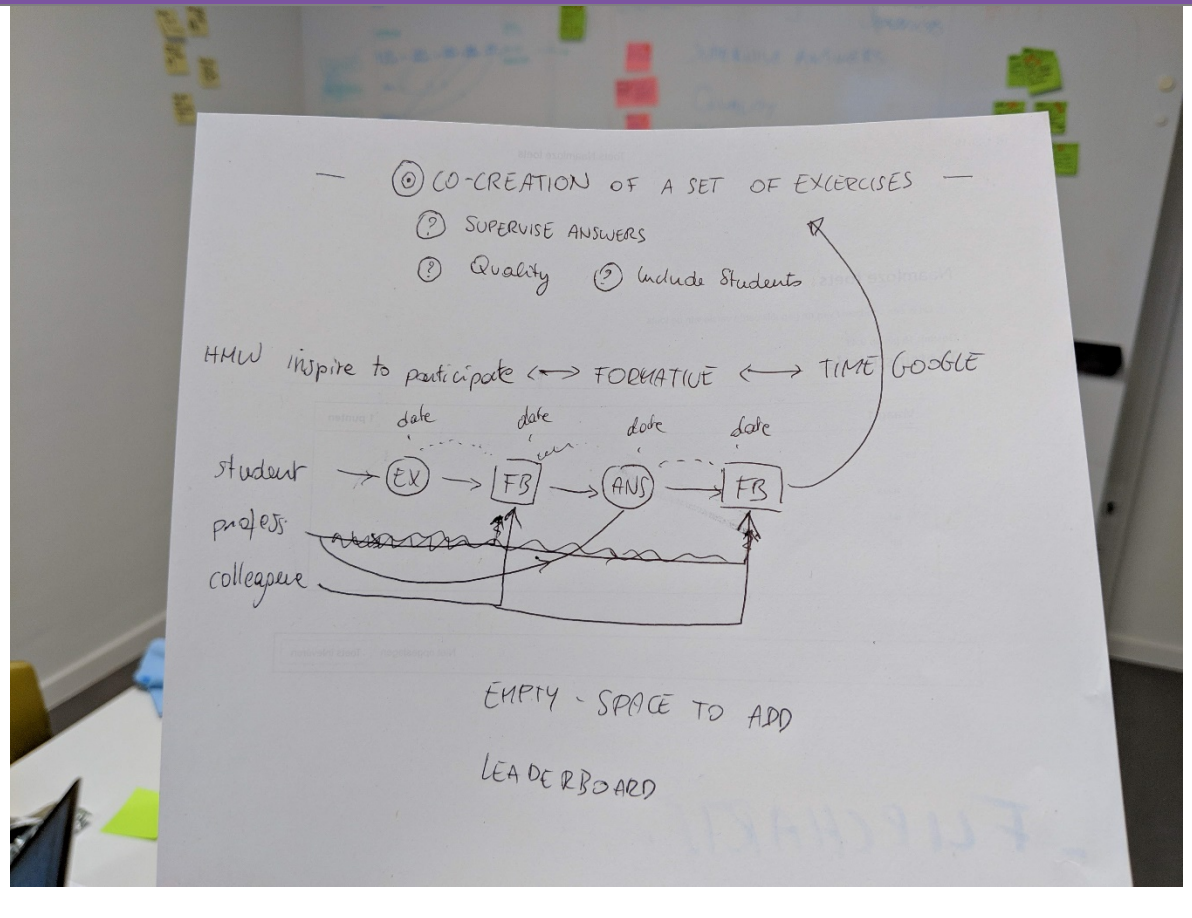 CO-CREATION OF A SET OF EXCERCISES
? SUPERVISE ANSWERS
? Quality ? Include Students
HMW inspire to participate <-> FORMATIVE <-> TIME GOOGLE
date date date date
student → EX → FB → ANS → FB
profess.
colleague
EMPTY - SPACE TO ADD
LEADERBOARD